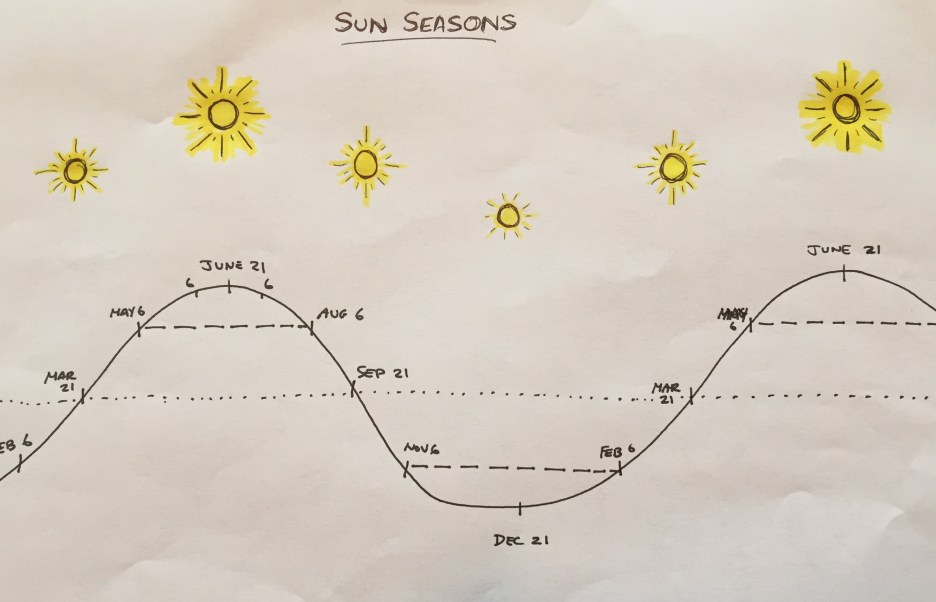 SUN SEASONS
JUNE 21
6
6
MAY 6
AUG 6
MAR
21
SEP 21
EB 6
NOV 6
FEB 6
DEC 21
MAR
21
MAY
6
JUNE 21